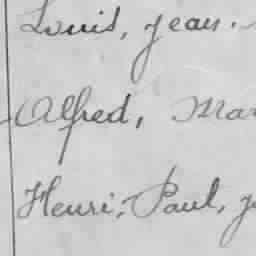 Louis, Jean.
Alfred, Mar
Henri, Paul, J